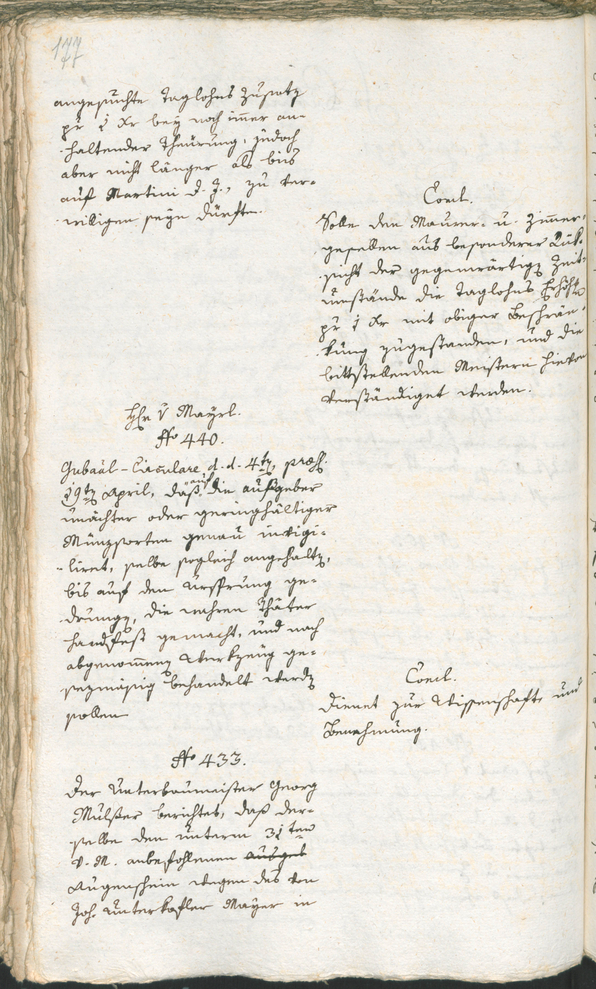 177
angesuchte Taglohns Zusatz
pr 1 Xr bey noch immer an-
haltender Theurung, jedoch
aber nicht länger als bis
auf Martini d. J., zu ver-
willigen seyn dürfte.
Concl.
Solle den Maurer- u. Zimmer-
gesellen aus besonderer Rük-
sicht der gegenwärtigen Zeit-
umstände die Taglohns Erhöhg
pr 1 Xr mit obiger Beschrän-
kung zugestanden, und die
bittstellenden Meistern hievon
verständiget werden.
Hr v Mayrl.
No 440.
Gubaal-Circulare d. d. 4ten, præs.
19ten April, daß auf die Ausgeber
unächter oder geringhältiger
Münzsorten genau invigi-
liret, selbe sogleich angehalten,
bis auf den Ursprung ge-
drungen, die wahren Thäter
handfest gemacht, und nach
abgenommenen Werkzeug ge-
sezmäsig behandelt werden
sollen
Concl.
Dienet zur Wissenschaft und
Benehmung.
No 433.
Der Unterbaumeister Georg
Mülser berichtet, daß der-
selbe den unterm 31ten
v. M. anbefohlenen
Augenschein wegen des von
Joh. Unterkofler Mayer in